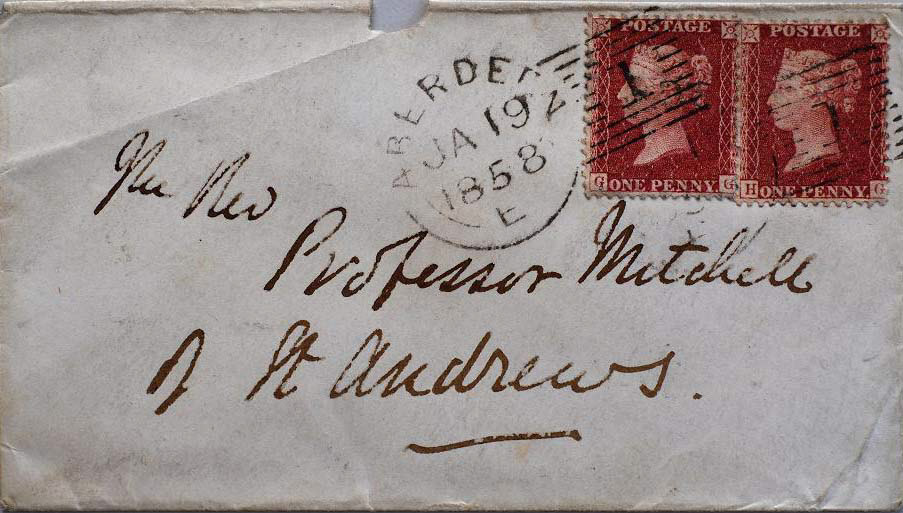 POSTAGE POSTAGE
G ONE PENNY G H ONE PENNY G
1 1
ABERDEE
JA 19
1858
E
The Rev
Professor Mitchell
St Andrews.